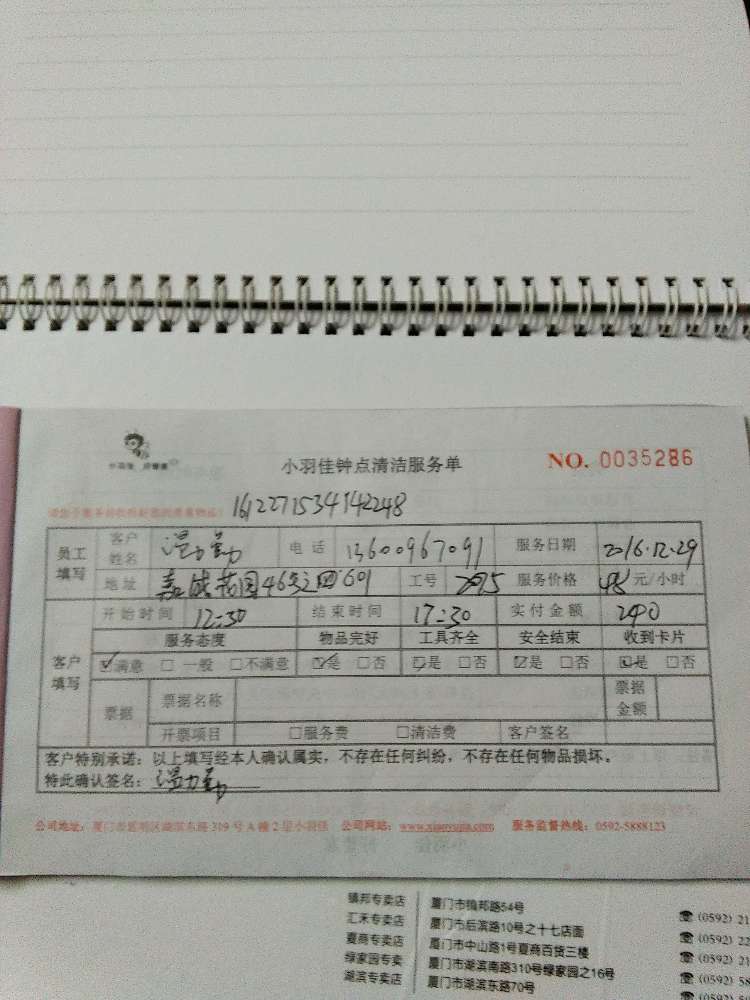 小羽佳 好管家
小羽佳钟点清洁服务单
NO. 0035286
1612271534142248
员工填写 客户姓名 温力勤 电话 13600967091 服务日期 2016.12.29
地址 嘉盛花园46号之四601 工号 2975 服务价格 48元/小时
客户填写 开始时间 12:30 结束时间 17:30 实付金额 240
服务态度 物品完好 工具齐全 安全结束 收到卡片
☑满意 □一般 □不满意 ☑是 □否 ☑是 □否 ☑是 □否 ☑是 □否
票据 票据名称 票据金额
开票项目 □服务费 □清洁费 客户签名
客户特别承诺：以上填写经本人确认属实，不存在任何纠纷，不存在任何物品损坏。
特此确认签名：温力勤
公司地址：厦门市思明区湖滨东路319号A幢2层小羽佳 公司网站：www.xiaoyujia.com 服务监督热线：0592-5888123
镇邦专卖店 厦门市镇邦路54号 ☎(0592) 21
汇禾专卖店 厦门市后滨路10号之十七店面 ☎(0592) 22
夏商专卖店 厦门市中山路1号夏商百货三楼 ☎(0592) 21
绿家园专卖 厦门市湖滨南路310号绿家园之16号 ☎(0592) 58
湖滨专卖店 厦门市湖滨东路70号